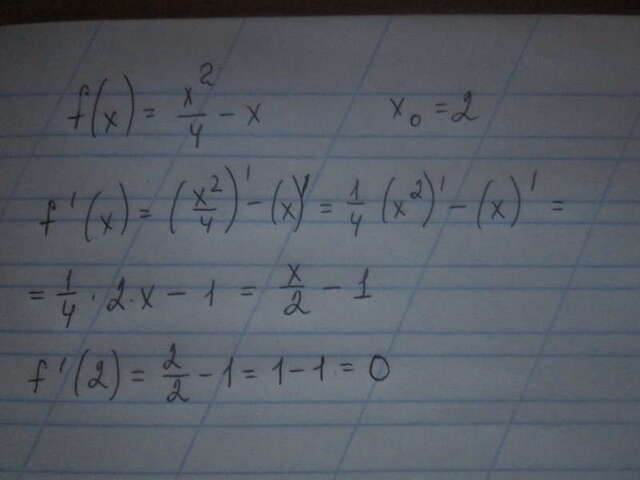 f(x) = x²/4 - x x₀ = 2
f'(x) = (x²/4)' - (x)' = 1/4 (x²)' - (x)' =
= 1/4 · 2 · x - 1 = x/2 - 1
f'(2) = 2/2 - 1 = 1 - 1 = 0